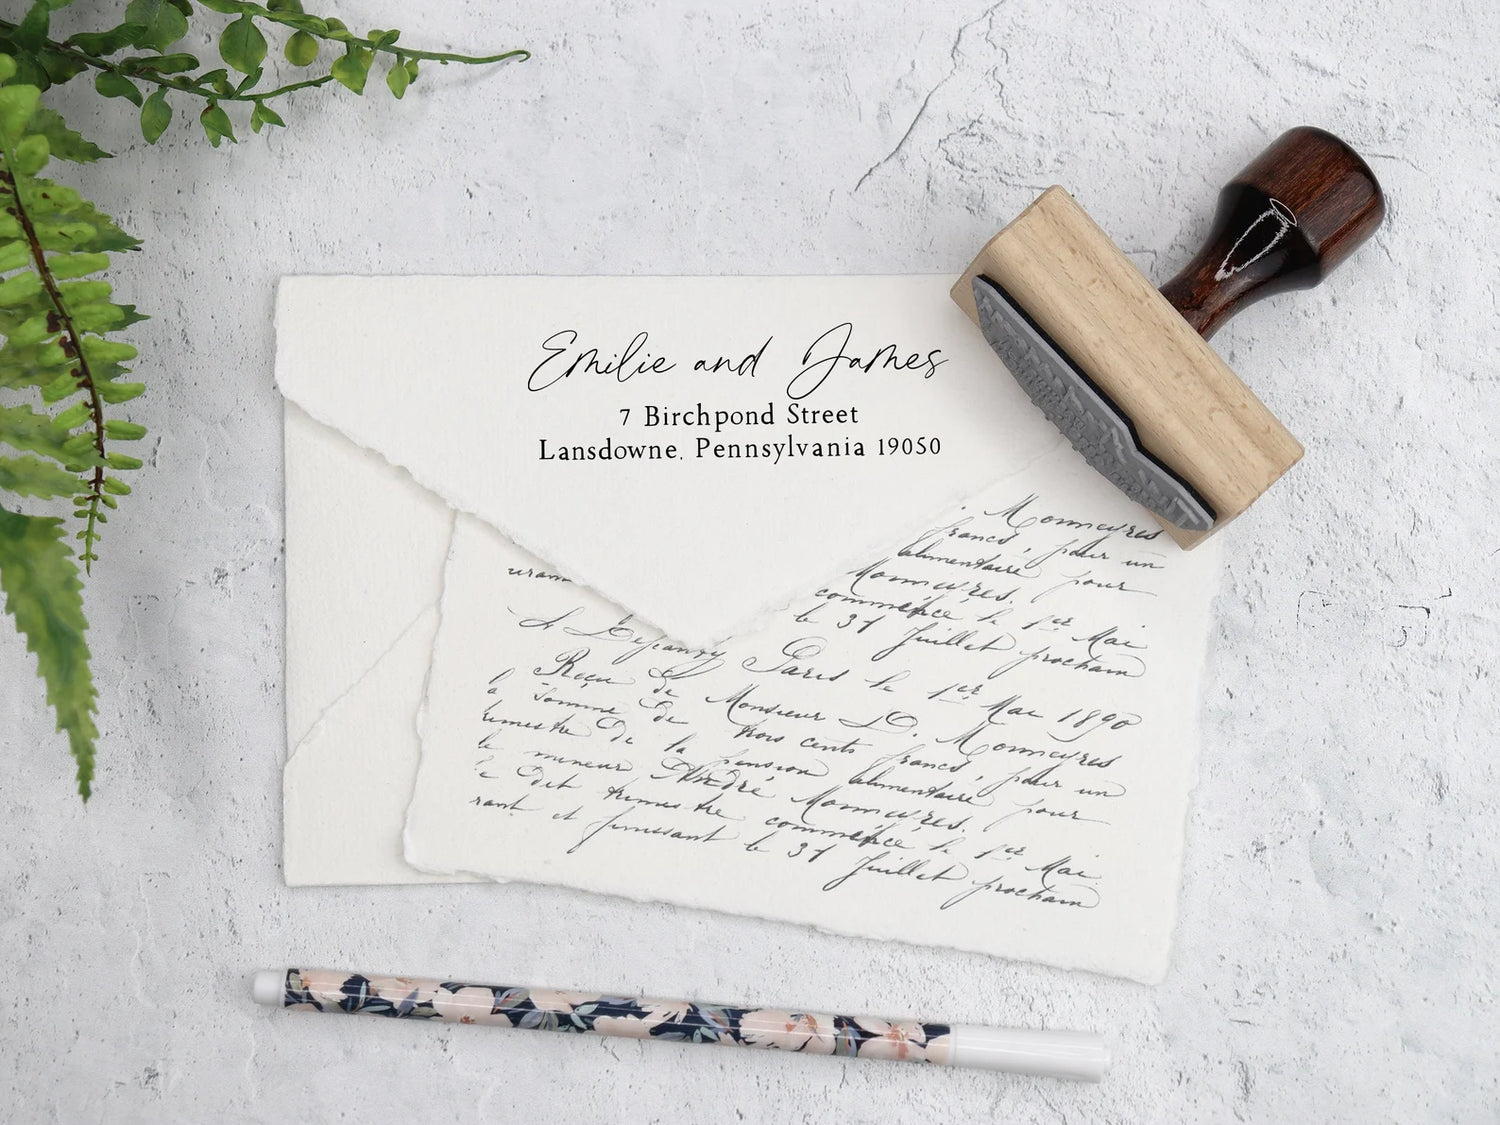 Emilie and James
7 Birchpond Street
Lansdowne, Pennsylvania 19050
Monneyres
francs, pour un
alimentaire pour
Monneyres.
commence le 1er Mai
le 31 Juillet prochain
Paris le 1er Mai 1890
Reçu de Monsieur D. Monneyres
la Somme de trois cents francs, pour un
trimestre de la pension alimentaire pour
le mineur André Monneyres.
Le dit trimestre commence le 1er Mai
et finissant le 31 Juillet prochain